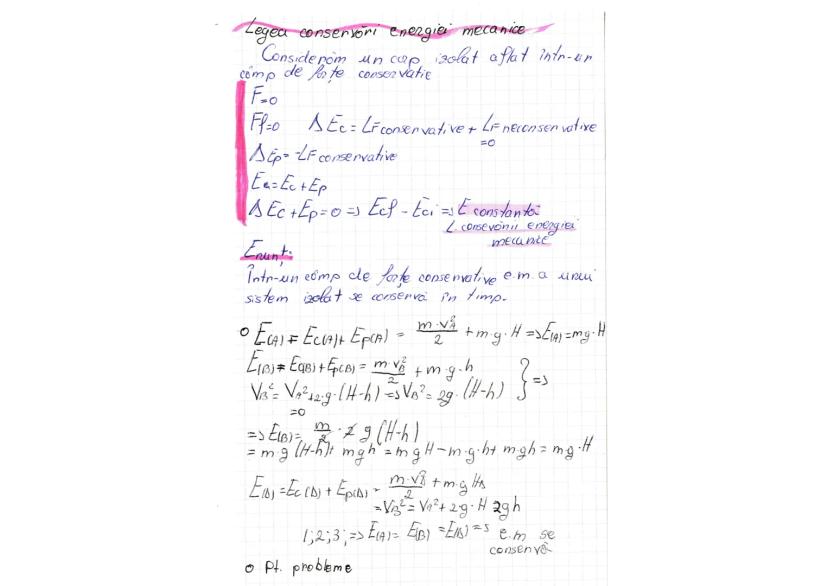 Legea conservări energiei mecanice
Considerăm un corp izolat aflat într-un
câmp de forțe conservative
F=0
Ff=0 ΔEc = LF conservative + LF neconservative
=0
ΔEp= -LF conservative
Ea=Ec+Ep
ΔEc+Ep=0 => Ecf - Eci => E constantă
L. consevării energiei
mecanice
Enunț:
Într-un câmp de forțe conservative e.m. a unui
sistem izolat se conservă în timp.
o E(A) = Ec(A)+ Ep(A) = m·vA²/2 + m·g·H => E(A) = mg·H
E(B) = Ec(B)+Ep(B) = m·vB²/2 + m·g·h
VB² = VA²+2·g·(H-h) => VB² = 2g·(H-h) } =>
=0
=> E(B) = m/2 · 2 g (H-h)
= m·g (H-h)+ mgh = mgH-m·g·h+ mgh = mg·H
E(D) = Ec(D) + Ep(D) = m·vD²/2 + m·g
=VB²=VA²+2·g·H 2gh
1;2;3; => E(A)= E(B) =E(D) => e.m se
conservă
o Pt. probleme